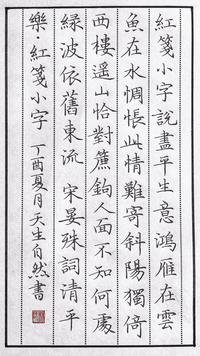 紅箋小字說盡平生意鴻雁在雲
魚在水惆悵此情難寄斜陽獨倚
西樓遥山恰對簾鉤人面不知何處
緑波依舊東流 宋晏殊詞清平
樂·紅箋小字 丁酉夏月天生自然書